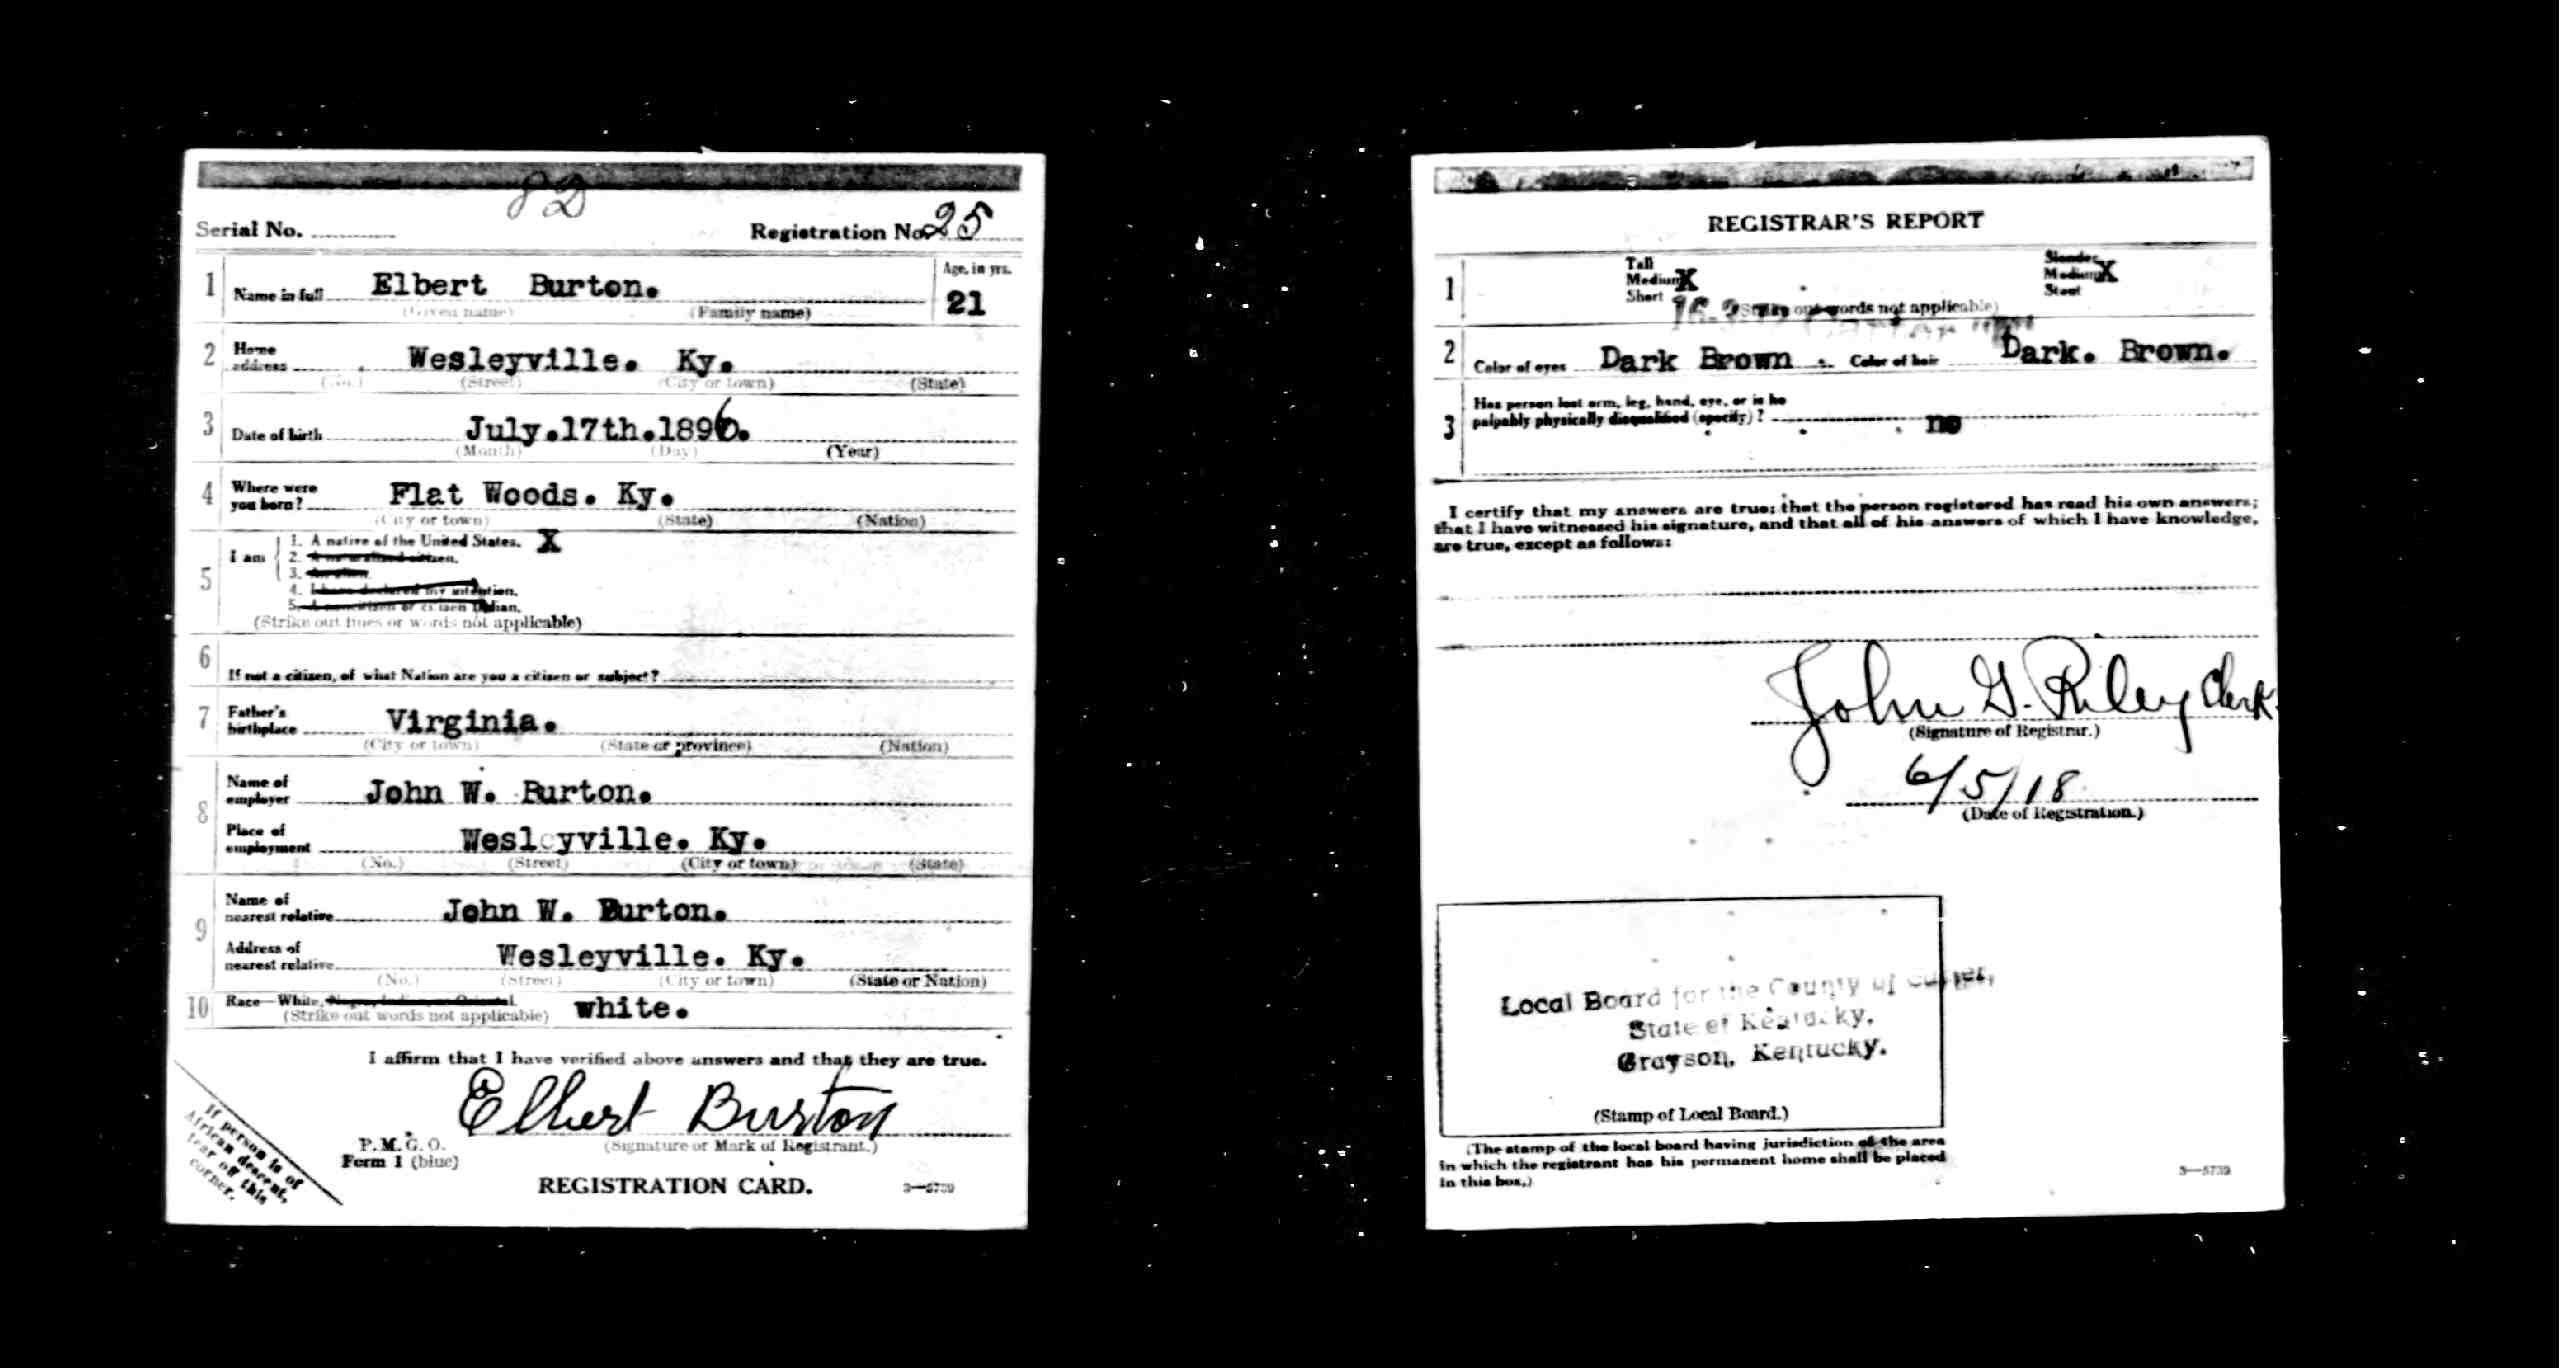 82
Serial No. Registration No. 25
1 Name in full Elbert Burton. Age, in yrs.
(Given name) (Family name) 21
2 Home address Wesleyville. Ky.
(No.) (Street) (City or town) (State)
3 Date of birth July.17th.1896.
(Month) (Day) (Year)
4 Where were you born? Flat Woods. Ky.
(City or town) (State) (Nation)
5 I am
1. A native of the United States. X
2. A naturalized citizen.
3. An alien.
4. I have declared my intention.
5. A noncitizen or citizen Indian.
(Strike out lines or words not applicable)
6 If not a citizen, of what Nation are you a citizen or subject?
7 Father's birthplace Virginia.
(City or town) (State or province) (Nation)
8 Name of employer John W. Burton.
Place of employment Wesleyville. Ky.
(No.) (Street) (City or town) (State)
9 Name of nearest relative John W. Burton.
Address of nearest relative Wesleyville. Ky.
(No.) (Street) (City or town) (State or Nation)
10 Race—White, Negro, Indian, or Oriental.
(Strike out words not applicable) white.
I affirm that I have verified above answers and that they are true.
Elbert Burton
(Signature or Mark of Registrant.)
P. M. G. O.
Form 1 (blue)
REGISTRATION CARD.
3—5739
If person is of
African descent,
tear off this
corner.
REGISTRAR'S REPORT
1 Tall Slender
Medium X Medium X
Short Stout
(Strike out words not applicable)
2 Color of eyes Dark Brown Color of hair Dark. Brown.
3 Has person lost arm, leg, hand, eye, or is he
palpably physically disqualified (specify)? no
I certify that my answers are true; that the person registered has read his own answers;
that I have witnessed his signature, and that all of his answers of which I have knowledge,
are true, except as follows:
John G. Riley Clerk.
(Signature of Registrar.)
6/5/18
(Date of Registration.)
Local Board for the County of Carter,
State of Kentucky,
Grayson, Kentucky.
(Stamp of Local Board.)
(The stamp of the local board having jurisdiction of the area
in which the registrant has his permanent home shall be placed
in this box.)
3—5739